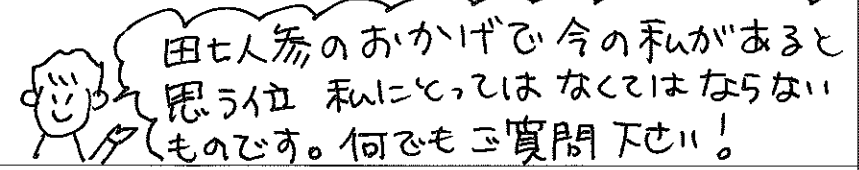 田七人参のおかげで今の私があると
思う位 私にとってはなくてはならない
ものです。何でもご質問下さい!